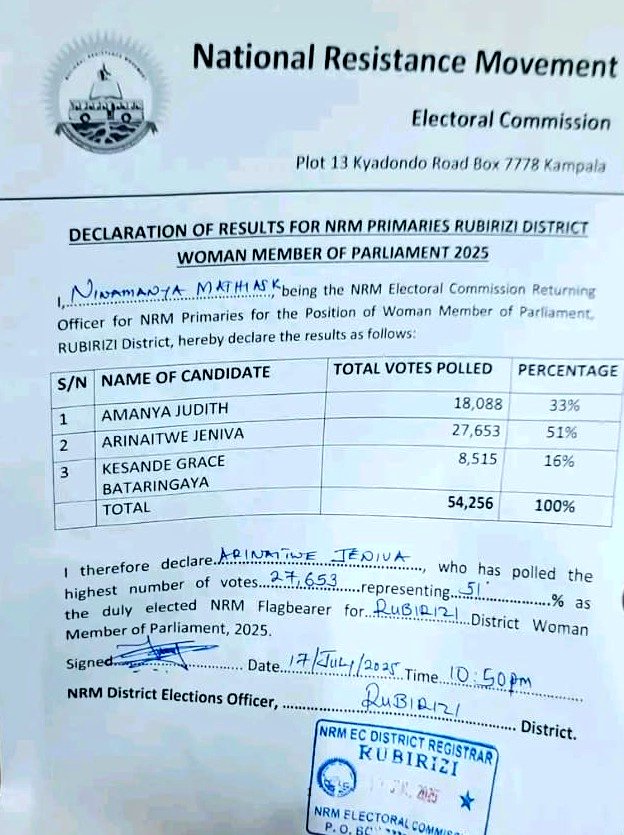 National Resistance Movement
Electoral Commission
Plot 13 Kyadondo Road Box 7778 Kampala
DECLARATION OF RESULTS FOR NRM PRIMARIES RUBIRIZI DISTRICT
WOMAN MEMBER OF PARLIAMENT 2025
I, NINAMANYA MATHIAS K, being the NRM Electoral Commission Returning
Officer for NRM Primaries for the Position of Woman Member of Parliament,
RUBIRIZI District, hereby declare the results as follows:
S/N NAME OF CANDIDATE TOTAL VOTES POLLED PERCENTAGE
1 AMANYA JUDITH 18,088 33%
2 ARINAITWE JENIVA 27,653 51%
3 KESANDE GRACE 8,515 16%
BATARINGAYA
TOTAL 54,256 100%
I therefore declare ARINAITWE JENIVA, who has polled the
highest number of votes 27,653 representing 51 % as
the duly elected NRM Flagbearer for RUBIRIZI District Woman
Member of Parliament, 2025.
Signed Date 17/July/2025 Time 10:50pm
NRM District Elections Officer, RUBIRIZI District.
NRM EC DISTRICT REGISTRAR
RUBIRIZI
2025
NRM ELECTORAL
P. O.